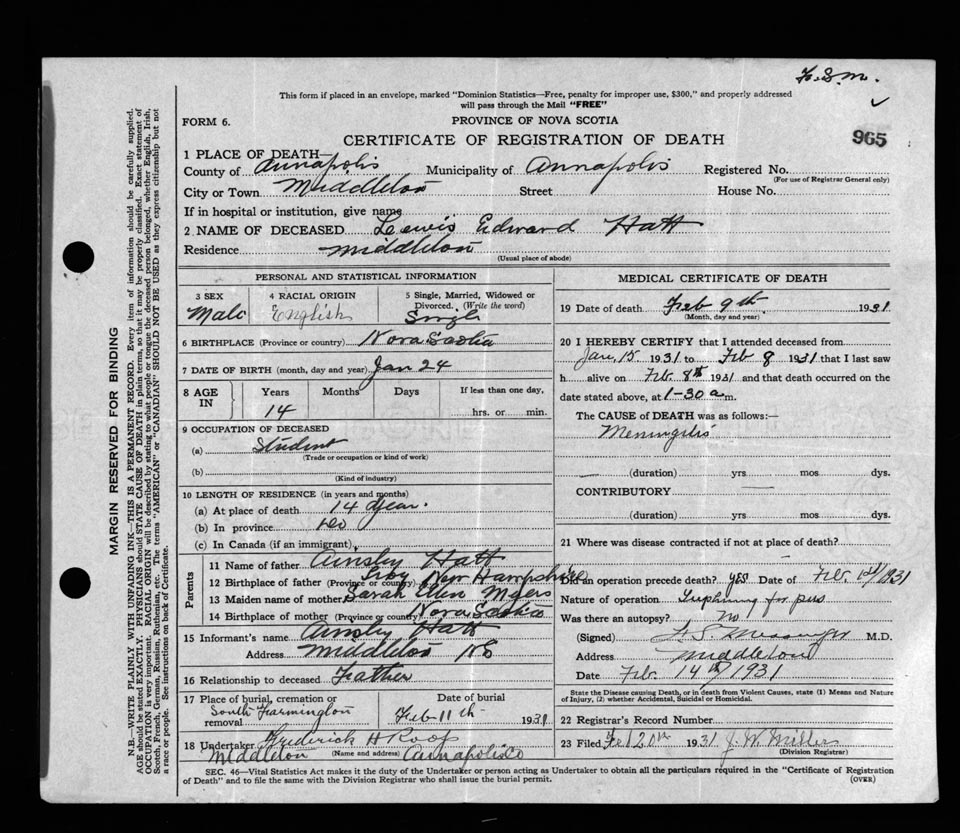 F.S.M.
This form if placed in an envelope, marked "Dominion Statistics—Free, penalty for improper use, $300," and properly addressed
will pass through the Mail "FREE"
FORM 6. PROVINCE OF NOVA SCOTIA
CERTIFICATE OF REGISTRATION OF DEATH 965
1 PLACE OF DEATH—
County of Annapolis Municipality of Annapolis Registered No.
(For use of Registrar General only)
City or Town Middleton Street House No.
If in hospital or institution, give name
2 NAME OF DECEASED Lewis Edward Hatt
Residence Middleton
(Usual place of abode)
PERSONAL AND STATISTICAL INFORMATION
3 SEX 4 RACIAL ORIGIN 5 Single, Married, Widowed or
Divorced. (Write the word)
Male English Single
6 BIRTHPLACE (Province or country) Nova Scotia
7 DATE OF BIRTH (month, day and year) Jan 24
8 AGE IN Years Months Days If less than one day,
14 hrs. or min.
9 OCCUPATION OF DECEASED
(a) Student
(Trade or occupation or kind of work)
(b)
(Kind of industry)
10 LENGTH OF RESIDENCE (in years and months)
(a) At place of death 14 year.
(b) In province do
(c) In Canada (if an immigrant)
Parents
11 Name of father Ainsley Hatt
12 Birthplace of father (Province or country) New Hampshire
13 Maiden name of mother Sarah Ellen Myers
14 Birthplace of mother (Province or country) Nova Scotia
15 Informant's name Ainsley Hatt
Address Middleton NS
16 Relationship to deceased Father
17 Place of burial, cremation or removal Date of burial
South Farmington Feb 11th 1931
18 Undertaker Frederick H Roop
(Name and address)
Middleton Annapolis Co
MEDICAL CERTIFICATE OF DEATH
19 Date of death Feb 9th 1931
(Month, day and year)
20 I HEREBY CERTIFY that I attended deceased from
Jan. 15 1931 to Feb 8 1931 that I last saw
h alive on Feb. 8th 1931 and that death occurred on the
date stated above, at 1-30 a m.
The CAUSE of DEATH was as follows:—
Meningitis
(duration) yrs mos dys.
CONTRIBUTORY
(duration) yrs mos dys.
21 Where was disease contracted if not at place of death?
Did an operation precede death? yes Date of Feb 1931
Nature of operation Trephining for pus
Was there an autopsy? no
(Signed) F. S. Messenger M.D.
Address Middleton
Date Feb. 14th 1931
State the Disease causing Death, or in death from Violent Causes, state (1) Means and Nature
of Injury, (2) whether Accidental, Suicidal or Homicidal.
22 Registrar's Record Number
23 Filed Feb 20th 1931 J. W. Miller
(Division Registrar)
SEC. 46—Vital Statistics Act makes it the duty of the Undertaker or person acting as Undertaker to obtain all the particulars required in the "Certificate of Registration
of Death" and to file the same with the Division Registrar who shall issue the burial permit. (OVER)
MARGIN RESERVED FOR BINDING
N.B.—WRITE PLAINLY WITH UNFADING INK—THIS IS A PERMANENT RECORD. Every item of information should be carefully supplied.
AGE should be stated EXACTLY. PHYSICIANS should STATE CAUSE OF DEATH in plain terms, so that it may be properly classified. Exact statement of
OCCUPATION is very important. RACIAL ORIGIN will be described by stating to what people or tongue the deceased person belonged, whether English, Irish,
Scotch, French, German, Russian, Ruthenian, etc. The terms "AMERICAN" or "CANADIAN" SHOULD NOT BE USED as they express citizenship but not
a race or people. See instructions on back of Certificate.